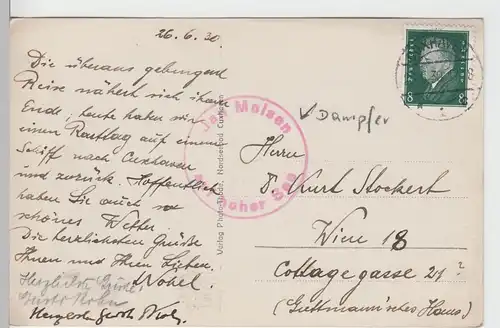 26.6.30.
Die überaus gelungene
Reise nähert sich ihrem
Ende, heute haben wir
einen Rasttag auf einem
Schiff nach Cuxhaven
und zurück. Hoffentlich
haben Sie auch so
schönes Wetter.
Die herzlichsten Grüße
Ihnen und Ihren Lieben.
Herzliche Grüße
Verlag Photo-Nordseebad Cuxhaven
Jan Molsen
auf hoher See
Dampfer
8 8
Herrn
Dr. Kurt Stockert
Wien 18
Cottagegasse 21 ?
(Guttmann'sches Haus)